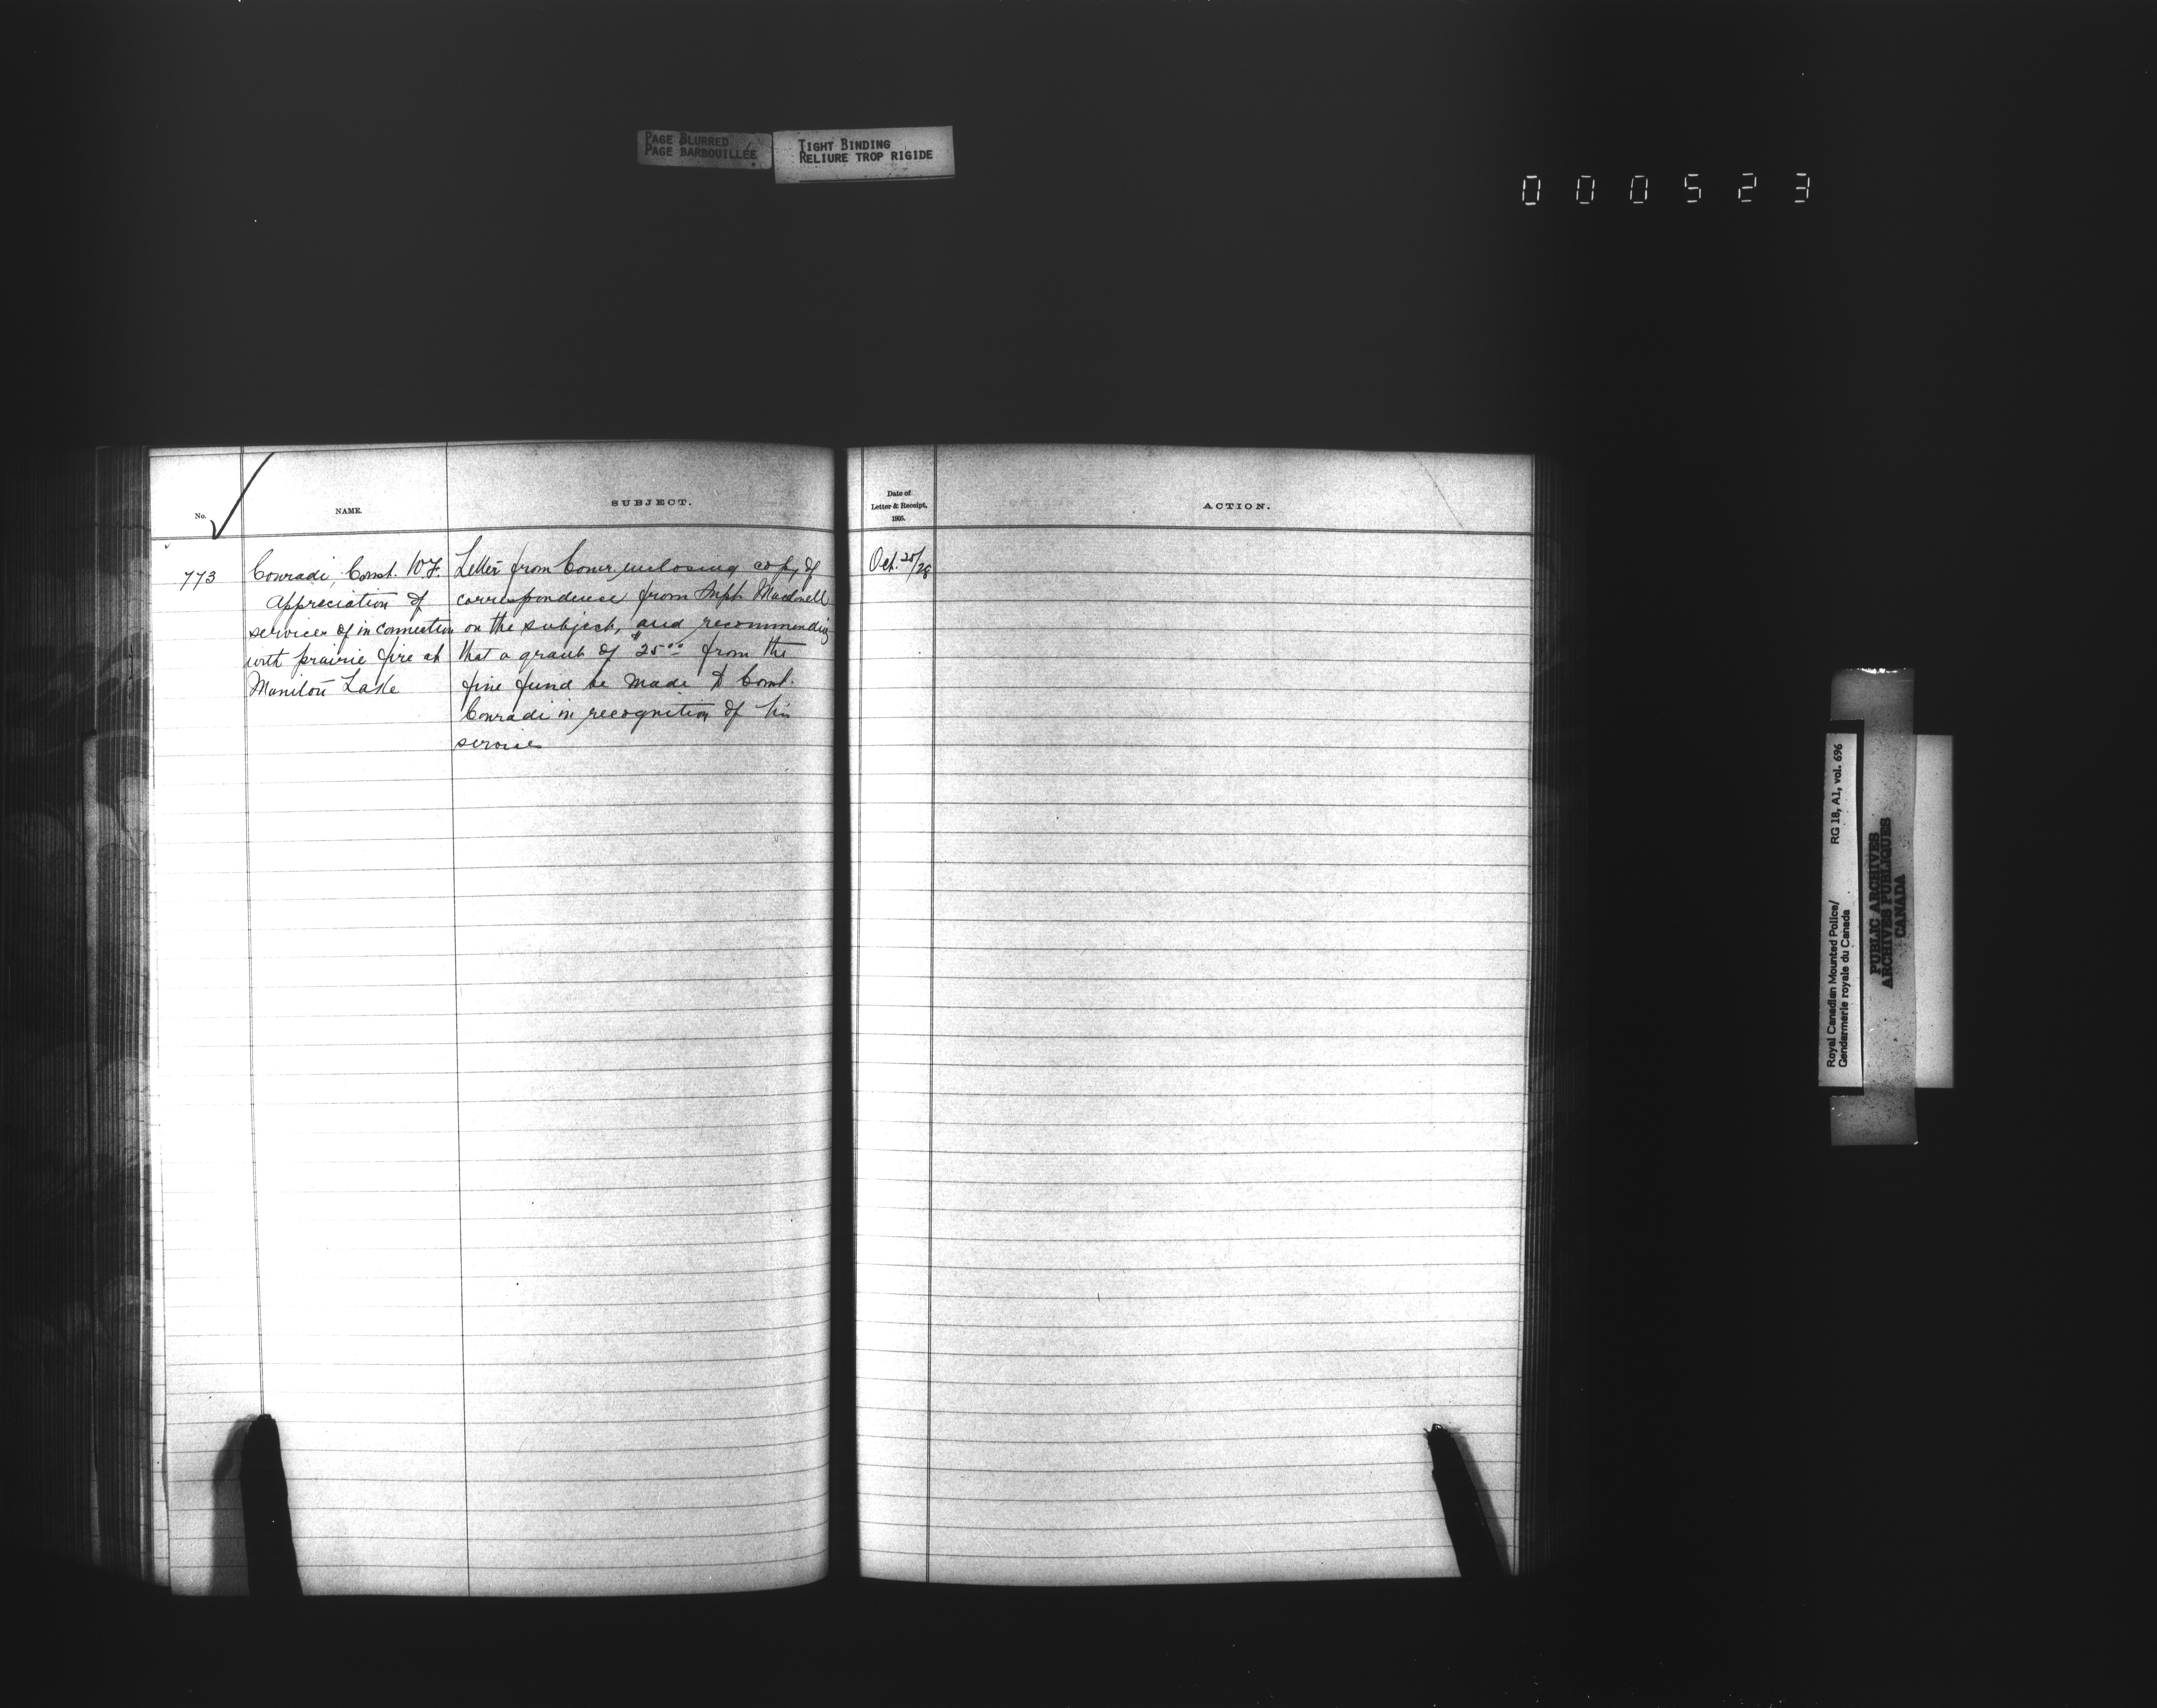 PAGE BLURRED
PAGE BARBOUILLÉE
TIGHT BINDING
RELIURE TROP RIGIDE
000523
No.
NAME.
SUBJECT.
773
Conradi, Const. W.F.
Appreciation of
services of in connection
with prairie fire at
Manitou Lake
Letter from Comr enclosing copy of
correspondence from Supt Macdonell
on the subject, and recommending
that a grant of $25.00 from the
fine fund be made to Const.
Conradi in recognition of his
services
Date of
Letter & Receipt,
1905.
ACTION.
Oct. 25/28
Royal Canadian Mounted Police/
Gendarmerie royale du Canada
RG 18, A1, vol. 696
PUBLIC ARCHIVES
ARCHIVES PUBLIQUES
CANADA